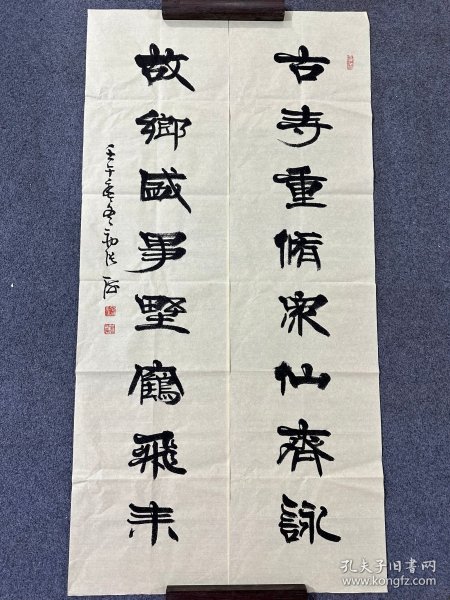 古寺重脩衆仙齊詠
故鄉盛事墅鶴飛来
壬午年冬初
孔夫子旧书网
www.kongfz.com